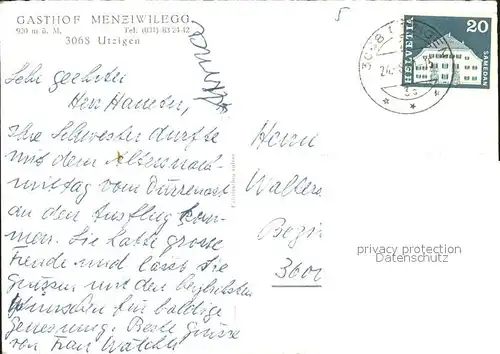 GASTHOF MENZIWILEGG
920 m ü. M. Tel: (031) 83 24 42
3068 Utzigen
5
3068 UTZIGEN
HELVETIA
20
SAMEDAN
Sehr geehrter
Herr
Ihre Schwester durfte
mit dem Altersnach-
mittag vom Dürrenast
an den Ausflug kom-
men. Sie hatte grosse
Freude und lässt Sie
grüssen mit den herzlichsten
Wünschen für baldige
Genesung. Beste Grüsse
von Frau
Herrn
Walter
Bezir
3600
privacy protection
Datenschutz